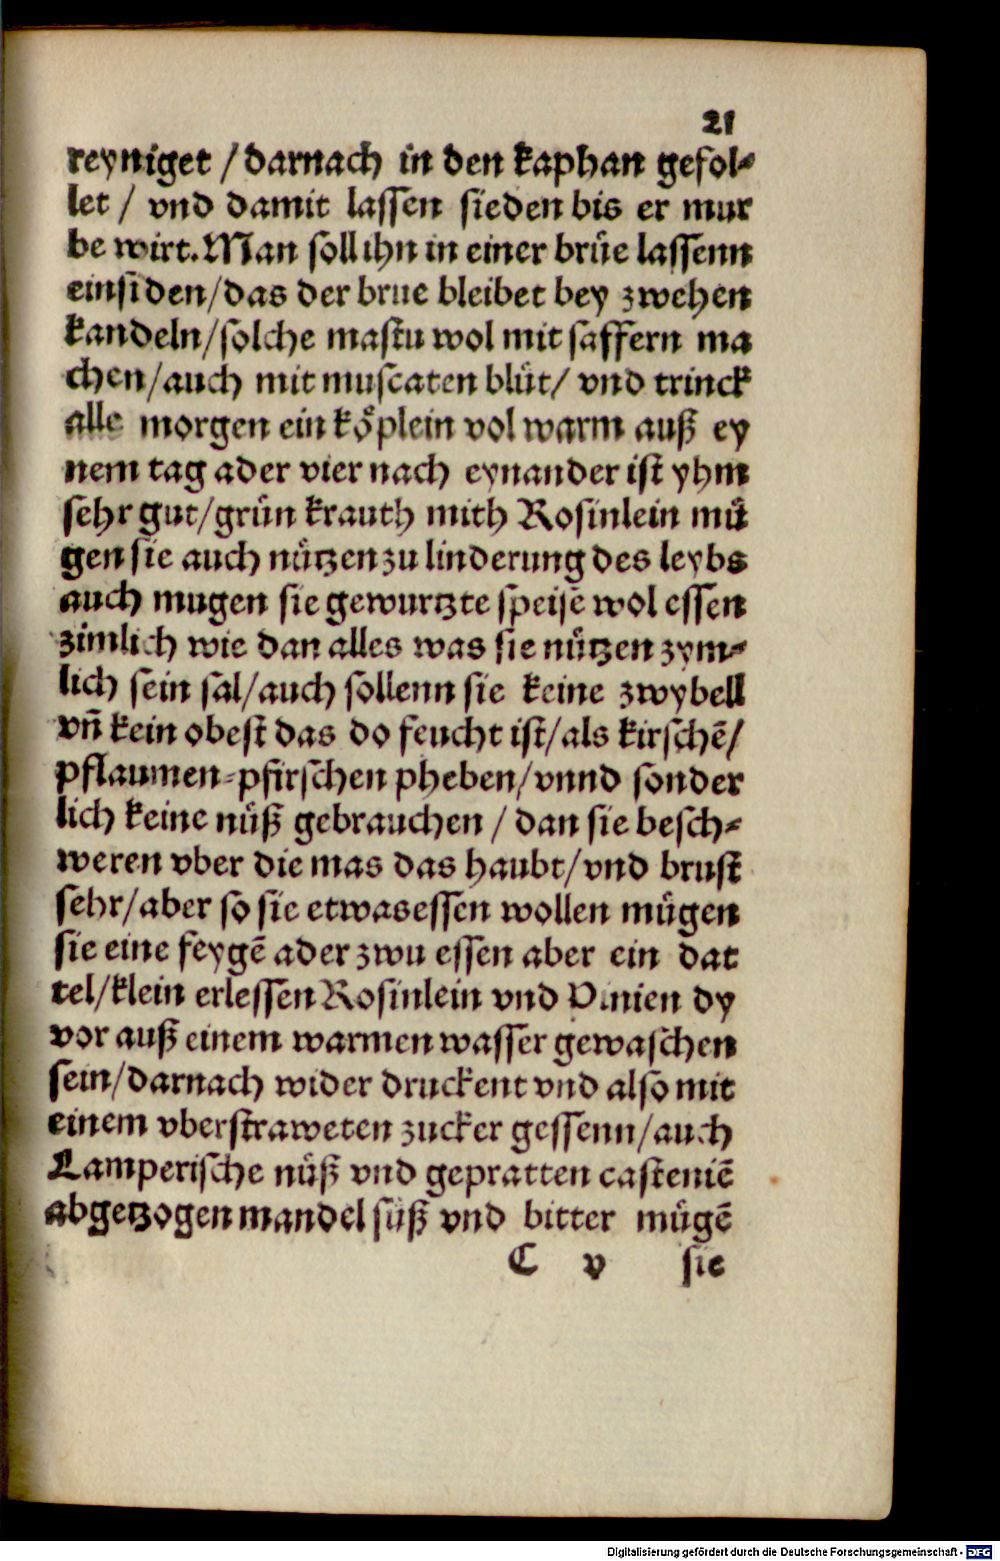 21
reyniget / darnach in den kaphan gefol⸗
let / vnd damit lassen sieden bis er mur
be wirt. Man soll ihn in einer brůe lassenn
einsiden/das der brue bleibet bey zwehen
kandeln/solche mastu wol mit saffern ma
chen/auch mit muscaten blůt/ vnd trinck
alle morgen ein koͤplein vol warm auß ey
nem tag ader vier nach eynander ist yhm
sehr gut/grůn krauth mith Rosinlein mů
gen sie auch nůtzen zu linderung des leybs
auch mugen sie gewurtzte speise wol essen
zimlich wie dan alles was sie nůtzen zym⸗
lich sein sal/auch sollenn sie keine zwybell
vñ kein obest das do feucht ist/als kirschē/
pflaumen⸗pfirschen pheben/vnnd sonder
lich keine nůß gebrauchen / dan sie besch⸗
weren vber die mas das haubt/vnd brust
sehr/aber so sie etwas essen wollen můgen
sie eine feygē ader zwu essen aber ein dat
tel/klein erlessen Rosinlein vnd Pinien dy
vor auß einem warmen wasser gewaschen
sein/darnach wider druckent vnd also mit
einem vberstraweten zucker gessenn/auch
Lamperische nůß vnd gepratten casteniē
abgetzogen mandel sůß vnd bitter můgē
C v sie
Digitalisierung gefördert durch die Deutsche Forschungsgemeinschaft - DFG